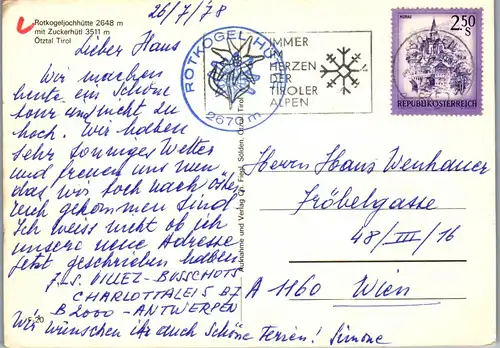 26/7/78
Rotkogeljochhütte 2648 m
mit Zuckerhütl 3511 m
Ötztal Tirol
Lieber Hans
Wir machen
heute ein schöne
tour und nicht zu
hoch. Wir haben
sehr sonniges Wetter
und freuen uns nun
das wir doch nach
Reich gekommen sind
Ich weiss nicht ob ich
unsere neue Adresse
jetzt geschrieben haben
J.&S. VILLEZ-BUSSCHOTS
CHARLOTTALEI 5 B7
B 2000 - ANTWERPEN
Wir wünschen ihr auch Schöne Ferien! Simone
20
Aufnahme und Verlag Ch. Fiegl, Sölden, Ötztal, Tirol
ROTKOGELHÜTTE
2670 m
IMMER
IM
HERZEN
DER
TIROLER
ALPEN
MURAU
2.50
S
REPUBLIK ÖSTERREICH
Herrn Hans Wenhauer
Fröbelgasse
48/III/16
A 1160 Wien